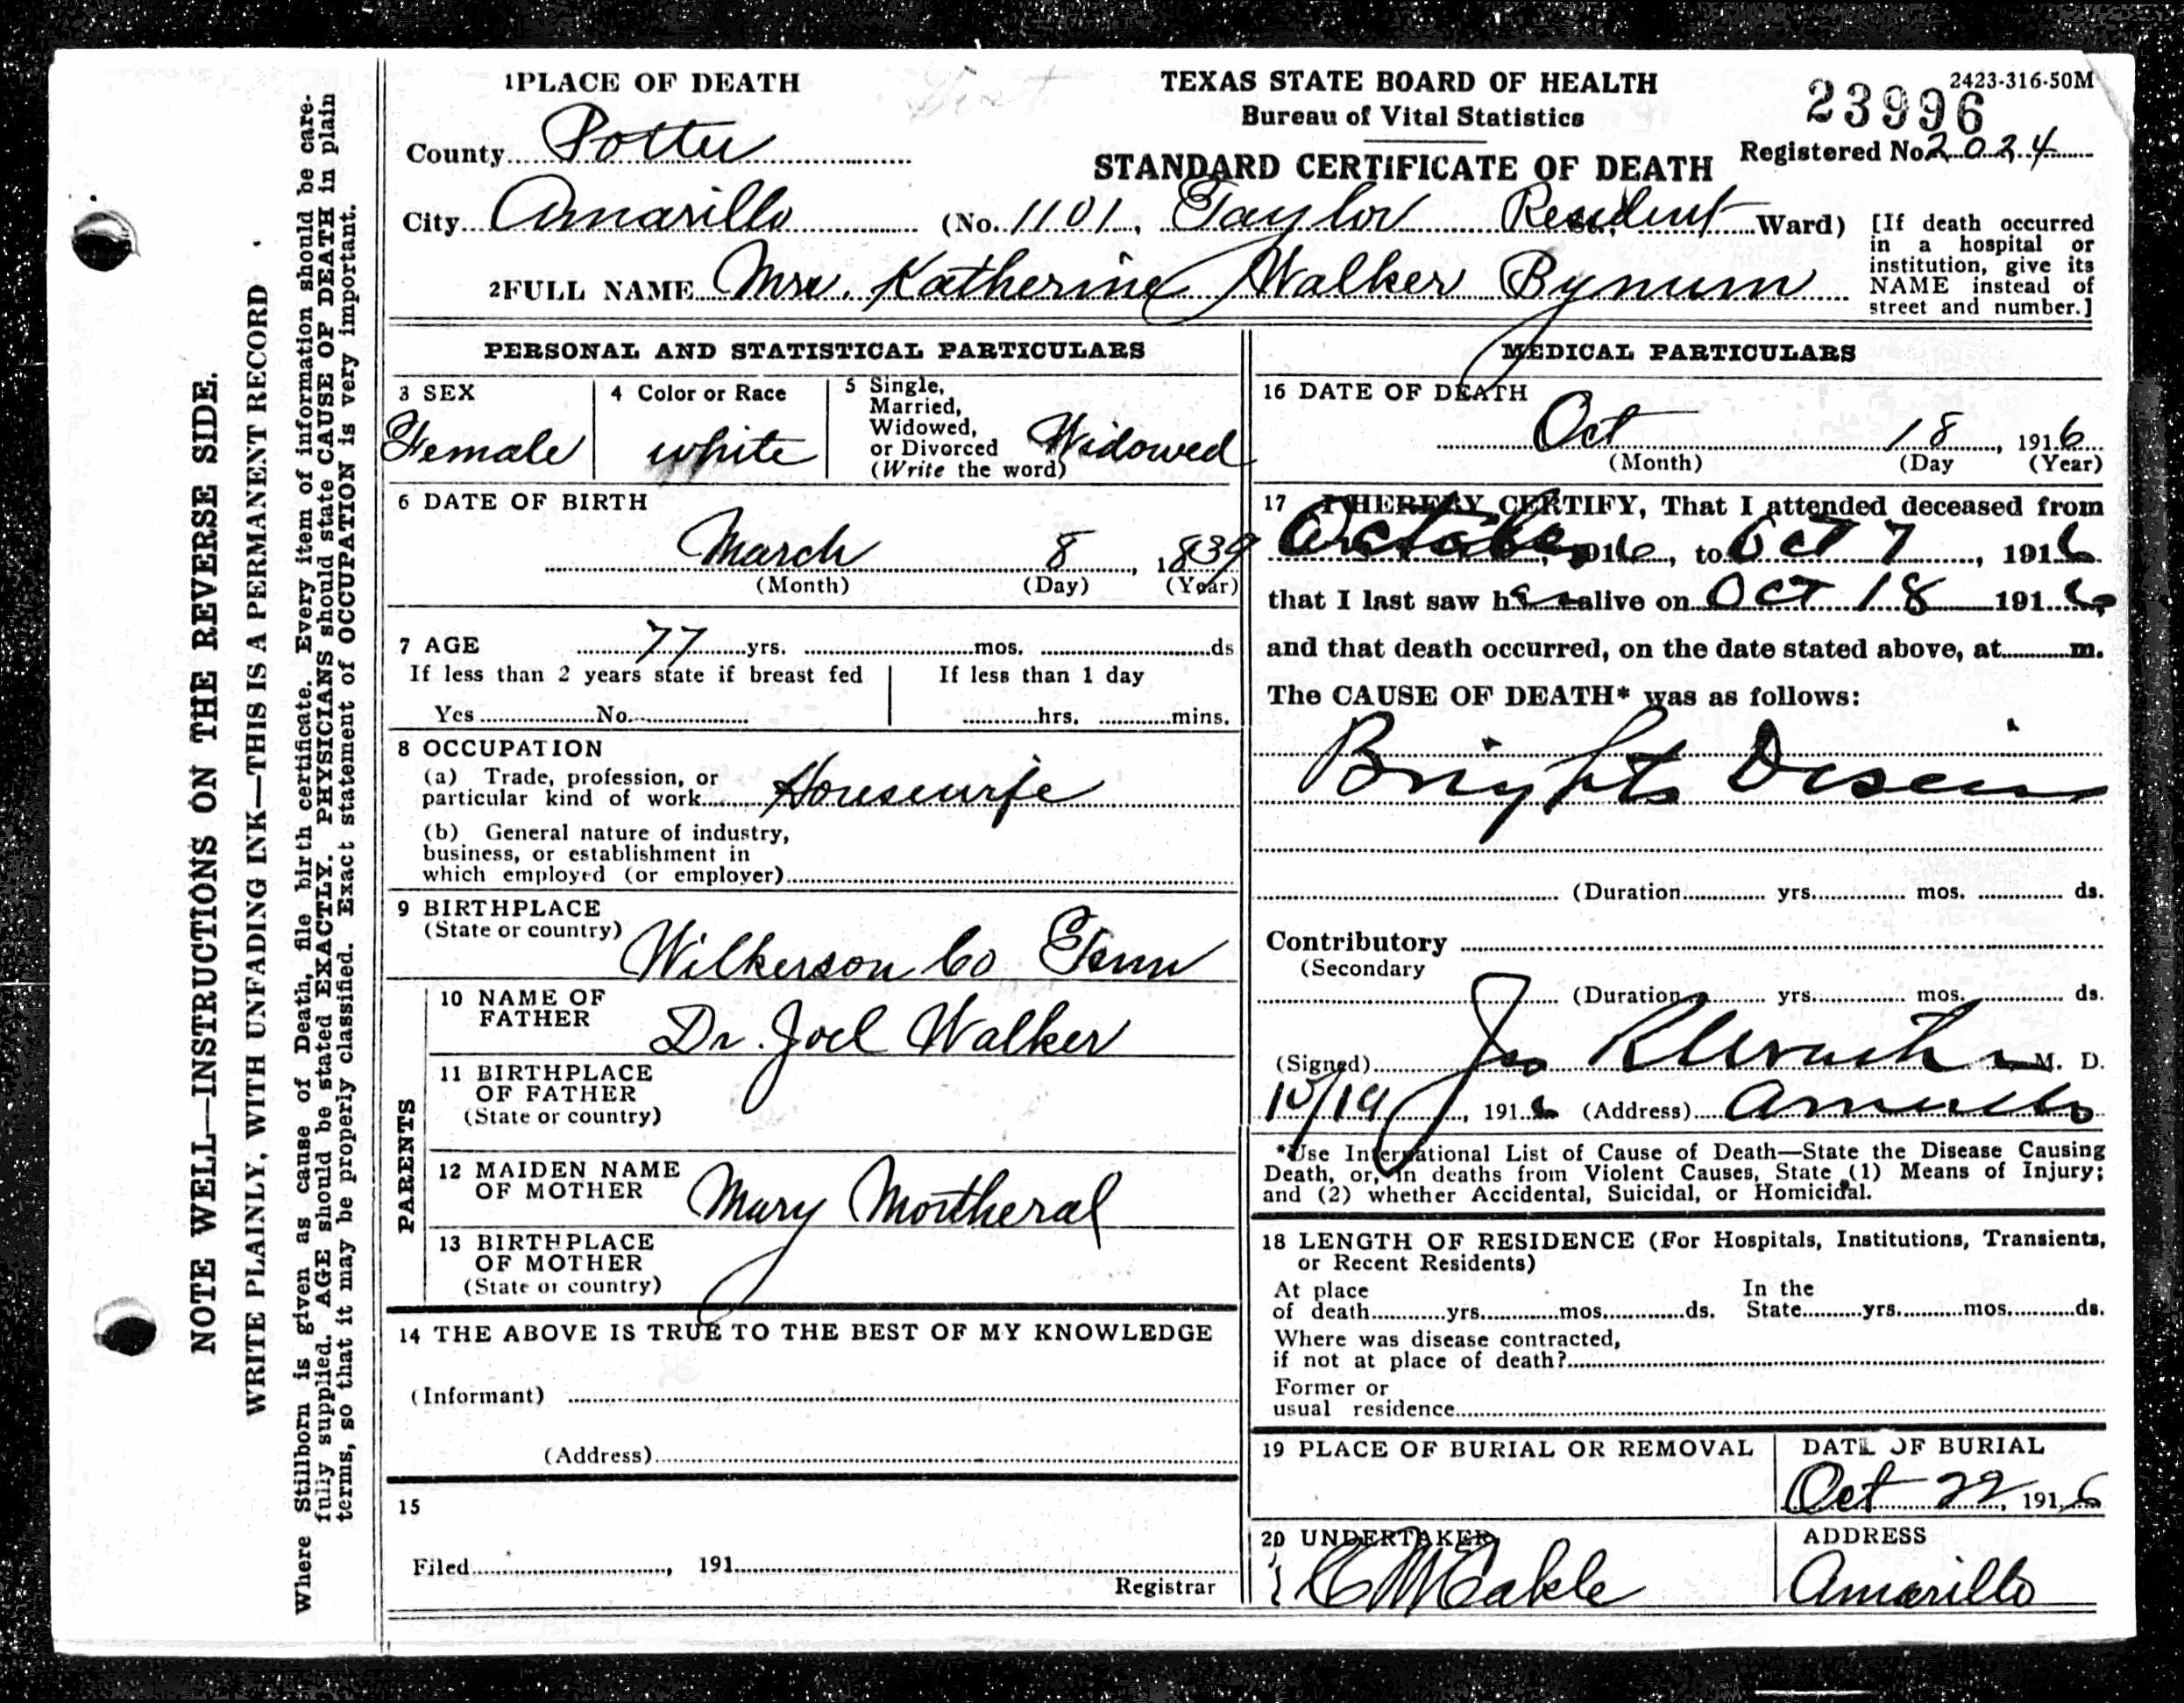 NOTE WELL—INSTRUCTIONS ON THE REVERSE SIDE.
WRITE PLAINLY, WITH UNFADING INK—THIS IS A PERMANENT RECORD
Where Stillborn is given as cause of Death, file birth certificate. Every item of information should be care-
fully supplied. AGE should be stated EXACTLY. PHYSICIANS should state CAUSE OF DEATH in plain
terms, so that it may be properly classified. Exact statement of OCCUPATION is very important.
1PLACE OF DEATH
County Potter
TEXAS STATE BOARD OF HEALTH
Bureau of Vital Statistics
STANDARD CERTIFICATE OF DEATH
2423-316-50M
23996
Registered No. 2024
City Amarillo (No. 1101, Taylor St., Resident Ward)
[If death occurred
in a hospital or
institution, give its
NAME instead of
street and number.]
2FULL NAME Mrs. Katherine Walker Bynum
PERSONAL AND STATISTICAL PARTICULARS
3 SEX
Female
4 Color or Race
white
5 Single,
Married,
Widowed,
or Divorced
(Write the word)
Widowed
6 DATE OF BIRTH
March 8, 1839
(Month) (Day) (Year)
7 AGE 77 yrs. mos. ds
If less than 2 years state if breast fed
Yes No.
If less than 1 day
hrs. mins.
8 OCCUPATION
(a) Trade, profession, or
particular kind of work Housewife
(b) General nature of industry,
business, or establishment in
which employed (or employer)
9 BIRTHPLACE
(State or country) Wilkerson Co Tenn
PARENTS
10 NAME OF
FATHER Dr. Joel Walker
11 BIRTHPLACE
OF FATHER
(State or country)
12 MAIDEN NAME
OF MOTHER Mary Mortheral
13 BIRTHPLACE
OF MOTHER
(State or country)
14 THE ABOVE IS TRUE TO THE BEST OF MY KNOWLEDGE
(Informant)
(Address)
15
Filed , 191
Registrar
MEDICAL PARTICULARS
16 DATE OF DEATH
Oct 18, 1916
(Month) (Day (Year)
17 I HEREBY CERTIFY, That I attended deceased from
October, 1916, to Oct 7, 1916
that I last saw her alive on Oct 18 1916
and that death occurred, on the date stated above, at m.
The CAUSE OF DEATH* was as follows:
Brights Disease
(Duration yrs. mos. ds.
Contributory
(Secondary
(Duration yrs. mos. ds.
(Signed) Jas M. D.
10/19, 1916 (Address) Amarillo
*Use International List of Cause of Death—State the Disease Causing
Death, or, in deaths from Violent Causes, State (1) Means of Injury;
and (2) whether Accidental, Suicidal, or Homicidal.
18 LENGTH OF RESIDENCE (For Hospitals, Institutions, Transients,
or Recent Residents)
At place In the
of death yrs. mos. ds. State yrs. mos. ds.
Where was disease contracted,
if not at place of death?
Former or
usual residence
19 PLACE OF BURIAL OR REMOVAL
DATE OF BURIAL
Oct 22, 1916
20 UNDERTAKER
C M Eakle
ADDRESS
Amarillo